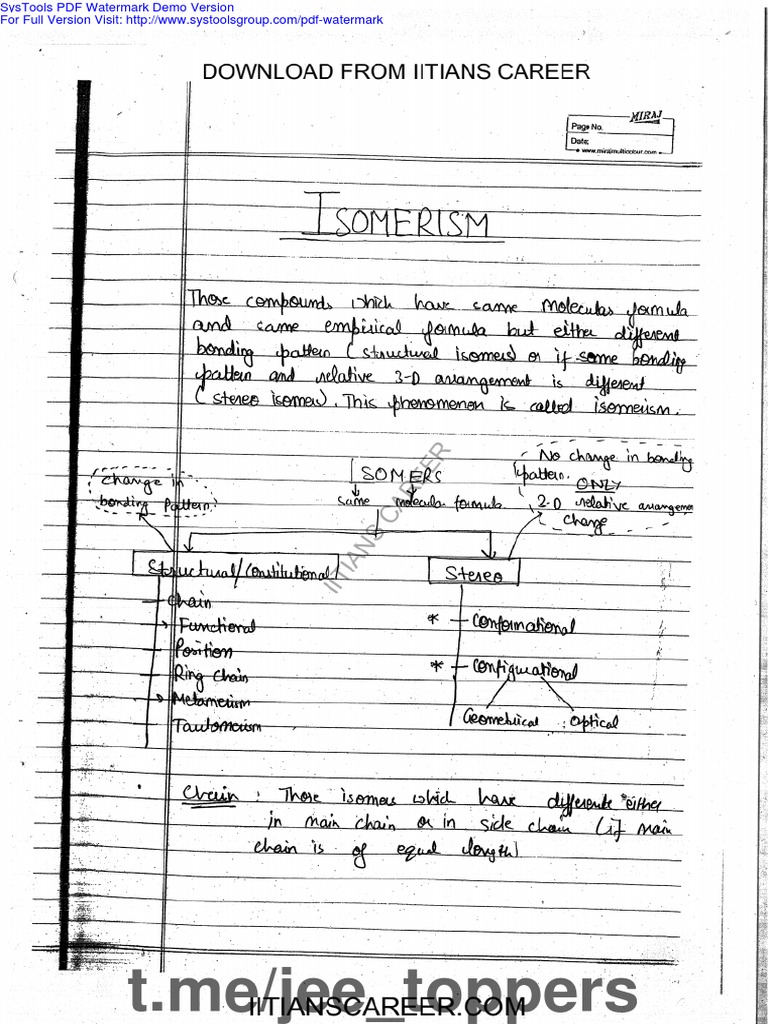 SysTools PDF Watermark Demo Version
For Full Version Visit: http://www.systoolsgroup.com/pdf-watermark
DOWNLOAD FROM IITIANS CAREER
MIRAJ
Page No.
Date:
www.mirajmulticolour.com
ISOMERISM
Those compounds which have same molecular formula
and same empirical formula but either different
bonding pattern (structural isomers) or if same bonding
pattern and relative 3-D arrangement is different
(stereo isomer). This phenomenon is called isomerism.
Change in
bonding Pattern
ISOMERS
same molecular formula
No change in bonding
pattern.
ONLY
2-D relative arrangement
change
IITIANS CAREER
Structural/Constitutional
Stereo
Chain
Functional
Position
Ring Chain
Metamerism
Tautomerism
* Conformational
* Configurational
Geometrical Optical
Chain : Those isomers which have differente either
in main chain or in side chain (if main
chain is of equal length)
t.me/jee_toppers
IITIANSCAREER.COM